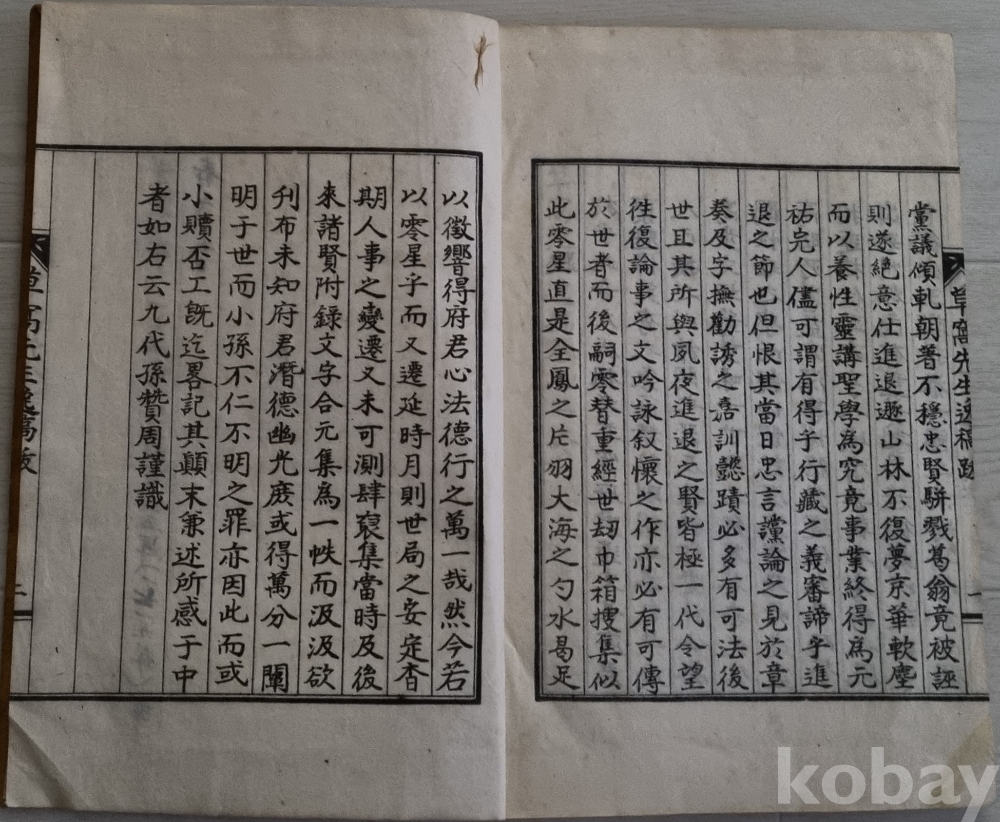 草窩先生逸稿跋
一
黨議傾軋朝著不穩忠賢騈戮葛翁竟被誣
則遂絶意仕進退遯山林不復夢京華軟塵
而以養性靈講聖學為究竟事業終得為元
祐完人儘可謂有得乎行藏之義審諦乎進
退之節也但恨其當日忠言讜論之見於章
奏及字撫勸誘之嘉訓懿蹟必多有可法後
世且其所與夙夜進退之賢皆極一代令望
徃復論事之文吟詠叙懷之作亦必有可傳
於世者而後嗣零替重經世刼巾箱搜集似
此零星直是全鳳之片羽大海之勺水曷足
以徵響得府君心法德行之萬一哉然今若
以零星乎而又遷延時月則世局之安定杳
期人事之變遷又未可測肆裒集當時及後
來諸賢附録文字合元集為一帙而汲汲欲
刊布未知府君潛德幽光庻或得萬分一闡
明于世而小孫不仁不明之罪亦因此而或
小贖否工旣迄畧記其顛末兼述所感于中
者如右云九代孫贊周謹識
二
kobay